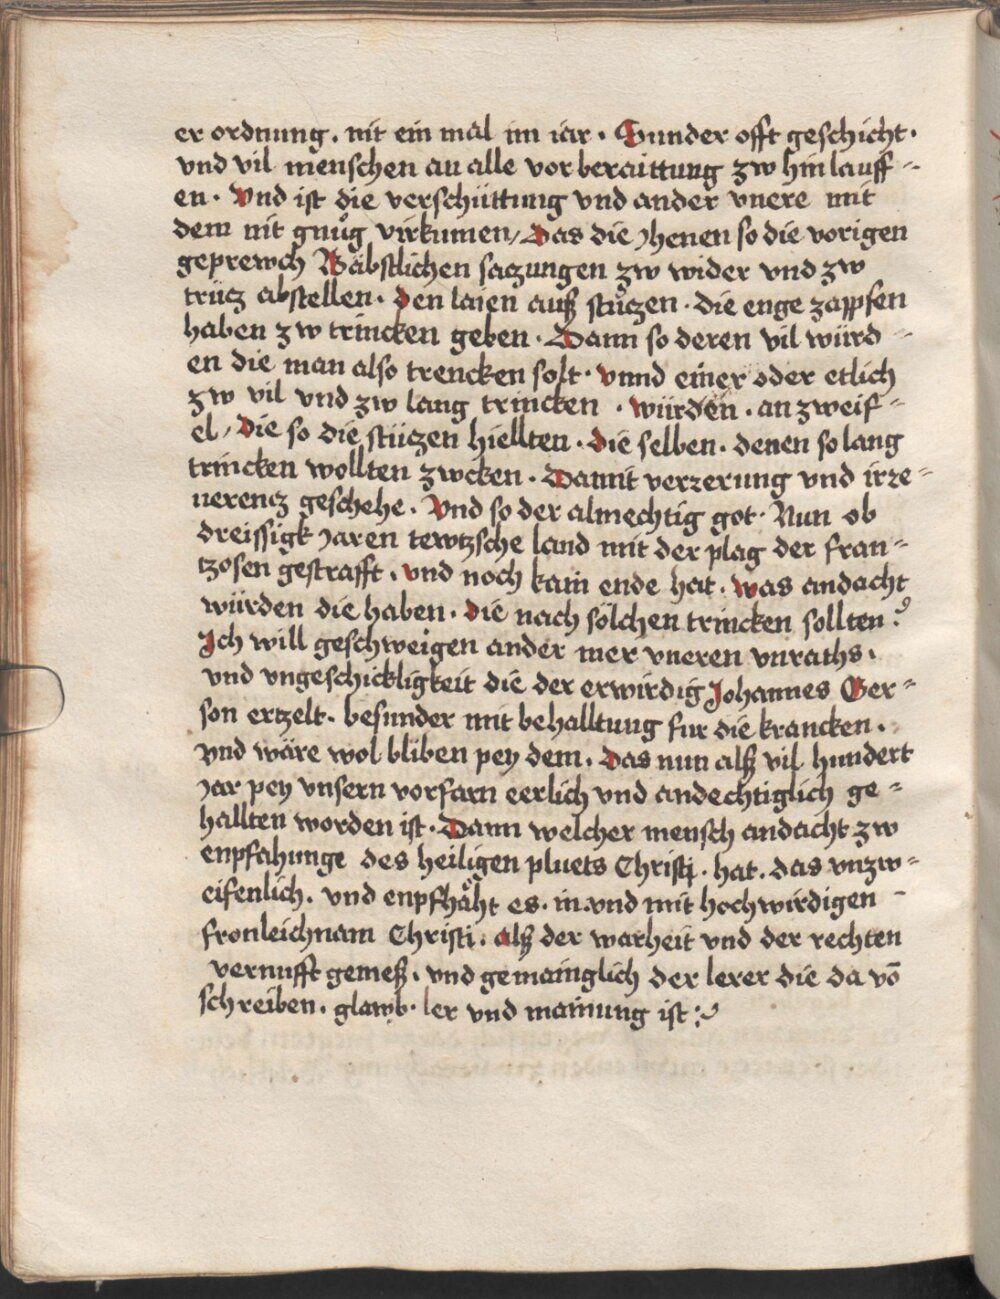 er ordnung. nit ein mal im iar. Sunder offt geschicht.
vnd vil menschen an alle vor beraittung zw hin lauff=
en. Vnd ist die verschüttung vnd ander vnere mit
dem nit gnůg virkumen, Das die yhenen so die vorigen
geprewch Bäbstlichen saczungen zw wider vnd zw
trücz abstellen. den laien auß stüczen. die enge zapfen
haben zw trincken geben. Dann so deren vil würd=
en die man also trencken solt. vnnd einer oder etlich
zw vil vnd zw lang trincken. würden. an zweif=
el, Die so die stüczen hiellten. die selben. denen so lang
trincken wollten zwcken. Damit verzerung vnd irre=
uerencz geschehe. Vnd so der almechtig got. Nun ob
dreissigk Jaren tewtzsche land mit der plag der fran=
tzosen gestrafft. vnd noch kain ende hat. was andacht
würden die haben. die nach sölchen trincken sollten?
Ich will geschweigen ander mer vneren vnraths.
vnd vngeschickligkeit die der erwirdig Johannes Ger=
son ertzelt. besunder mit behalltung fur die krancken.
vnd wäre wol bliben pey dem. Das nun alß vil hundert
Jar pey vnsern vorfarn eerlich vnd andechtiglich ge=
hallten worden ist. Dann welcher mensch andacht zw
enpfahunge des heiligen pluets Christi. hat. das vnzw=
eifenlich. vnd enpfhäht es. in vnd mit hochwirdigen
fronleichnam Christi. alß der warheit vnd der rechten
vernufft gemeß. vnd gemainglich der lerer die da vō
schreiben. glawb. ler vnd mainung ist: